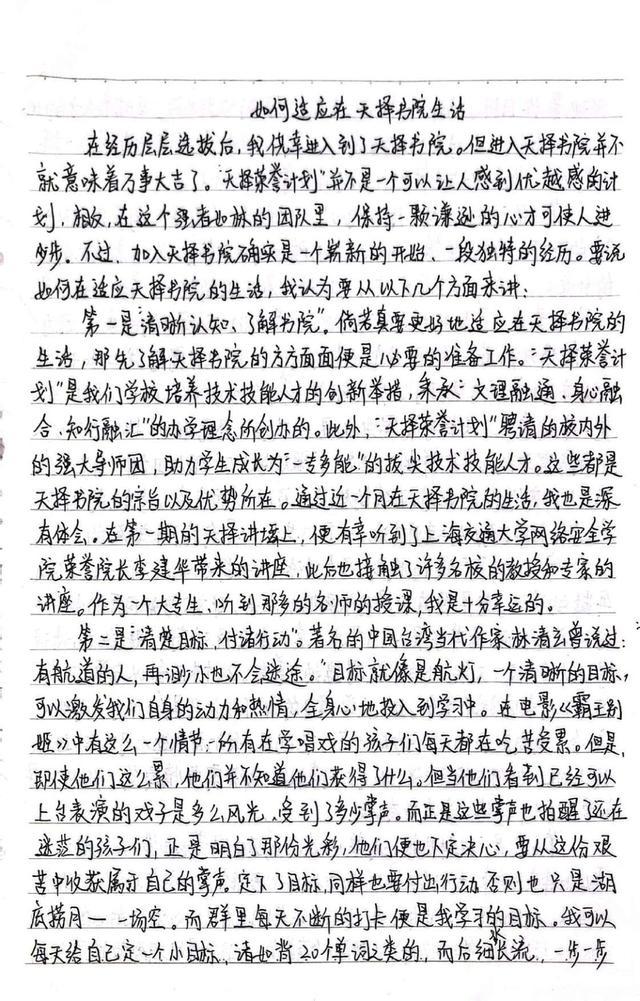 如何适应在天择书院生活
在经历层层选拔后，我侥幸进入到了天择书院。但进入天择书院并不
就意味着万事大吉了。“天择荣誉计划”并不是一个可以让人感到优越感的计
划，相反，在这个强者如林的团队里，保持一颗谦逊的心才可使人进
步。不过，加入天择书院确实是一个崭新的开始、一段独特的经历。要说
如何在适应天择书院的生活，我认为要从以下几个方面来讲：
第一是“清晰认知、了解书院”。倘若真要更好地适应在天择书院的
生活，那先了解天择书院的方方面面便是必要的准备工作。“天择荣誉计
划”是我们学校培养技术技能人才的创新举措，秉承“文理融通、身心融
合、知行融汇”的办学理念所创办的。此外，“天择荣誉计划”聘请的校内外
的强大导师团，助力学生成长为“一专多能”的拔尖技术技能人才。这些都是
天择书院的宗旨以及优势所在。通过近一个月在天择书院的生活，我也是深
有体会。在第一期的天择讲坛上，便有幸听到了上海交通大学网络安全学
院荣誉院长李建华带来的讲座，此后也接触了许多名校的教授和专家的
讲座。作为一个大专生、听到那多的名师的授课，我是十分幸运的。
第二是“清楚目标，付诸行动”。著名的中国台湾当代作家林清玄曾说过：
有航道的人，再渺小也不会迷途。”目标就像是航灯，一个清晰的目标，
可以激发我们自身的动力和热情，全身心地投入到学习中。在电影《霸王别
姬》中有这么一个情节：所有在学唱戏的孩子们每天都在吃苦受累。但是，
即使他们这么累，他们并不知道他们获得了什么。但当他们看到已经可以
上台表演的戏子是多么风光、受到了多少掌声。而正是这些掌声也拍醒了还在
迷茫的孩子们，正是明白了那份光彩，他们便也下定决心，要从这份艰
苦中收获属于自己的掌声。定下了目标，同样也要付出行动 否则也只是湖
底捞月一一场空。而群里每天不断的打卡便是我学习的目标。我可以
每天给自己定一个小目标，诸如背20个单词之类的，而后细水长流，一步一步